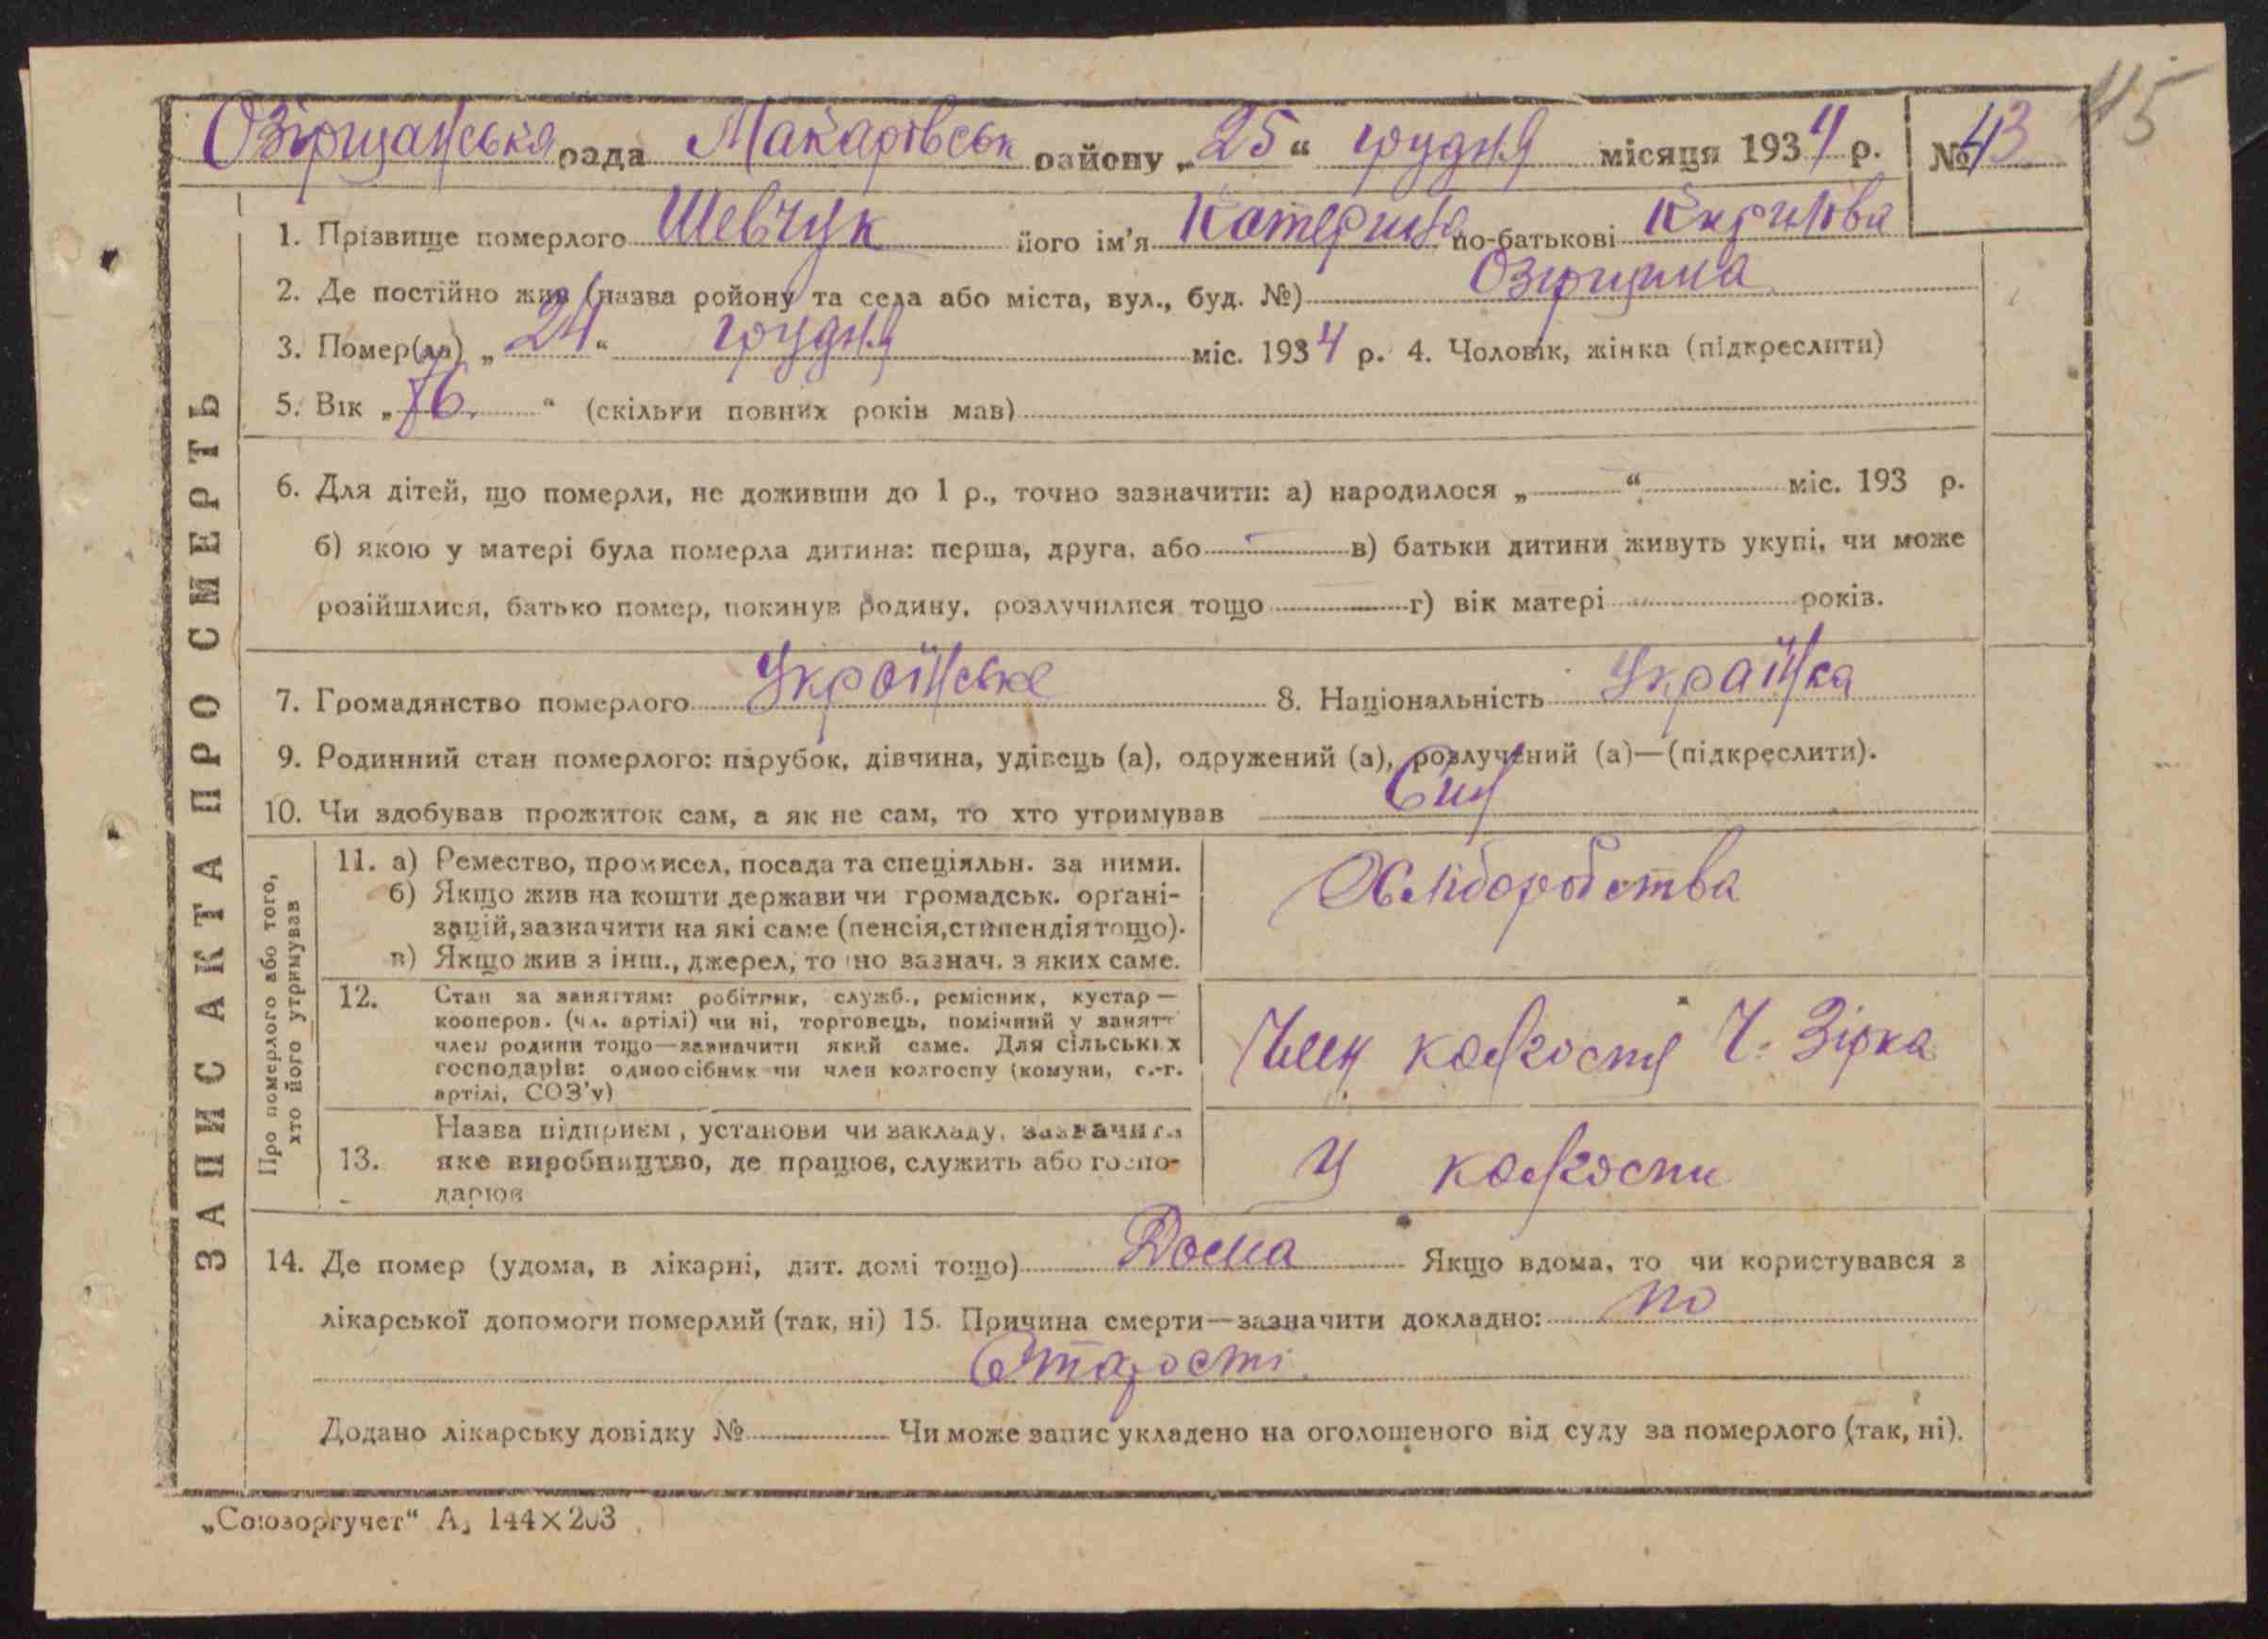 115
Озірщанська рада Макарівськ району „25“ грудня місяця 1934 р. №43
1. Прізвище померлого Шевчук його ім'я Катерина по-батькові Кирилова
2. Де постійно жив (назва ройону та села або міста, вул., буд. №) Озірщина
3. Помер(ла) „24“ грудня міс. 1934 р. 4. Чоловік, жінка (підкреслити)
5. Вік „76“ (скільки повних років мав)
6. Для дітей, що померли, не доживши до 1 р., точно зазначити: а) народилося „ “ міс. 193 р.
б) якою у матері була померла дитина: перша, друга, або в) батьки дитини живуть укупі, чи може
розійшлися, батько помер, покинув родину, розлучилися тощо г) вік матері років.
7. Громадянство померлого Українське 8. Національність Українка
9. Родинний стан померлого: парубок, дівчина, удівець (а), одружений (а), розлучений (а)—(підкреслити).
10. Чи здобував прожиток сам, а як не сам, то хто утримував Син
ЗАПИС АКТА ПРО СМЕРТЬ
Про померлого або того,
хто його утримував
11. а) Ремество, промисел, посада та спеціяльн. за ними.
б) Якщо жив на кошти держави чи громадськ. орґані-
зацій, зазначити на які саме (пенсія, стипендія тощо).
в) Якщо жив з інш., джерел, то но зазнач. з яких саме.
Хліборобства
12. Стан за заняттям: робітник, служб., ремісник, кустар—
кооперов. (чл. артілі) чи ні, торговець, помічний у занятт
член родини тощо—зазначити який саме. Для сільських
господарів: одноосібник чи член колгоспу (комуни, с.-г.
артілі, СОЗ'у)
Член колгоспу Ч. Зірка
Назва підприєм, установи чи закладу, зазначити
13. яке виробництво, де працює, служить або госпо-
дарює
У колгоспи
14. Де помер (удома, в лікарні, дит. домі тощо) Дома Якщо вдома, то чи користувався з
лікарської допомоги померлий (так, ні) 15. Причина смерти—зазначити докладно: по
Старості
Додано лікарську довідку № Чи може запис укладено на оголошеного від суду за померлого (так, ні).
„Союзоргучет“ А, 144×203